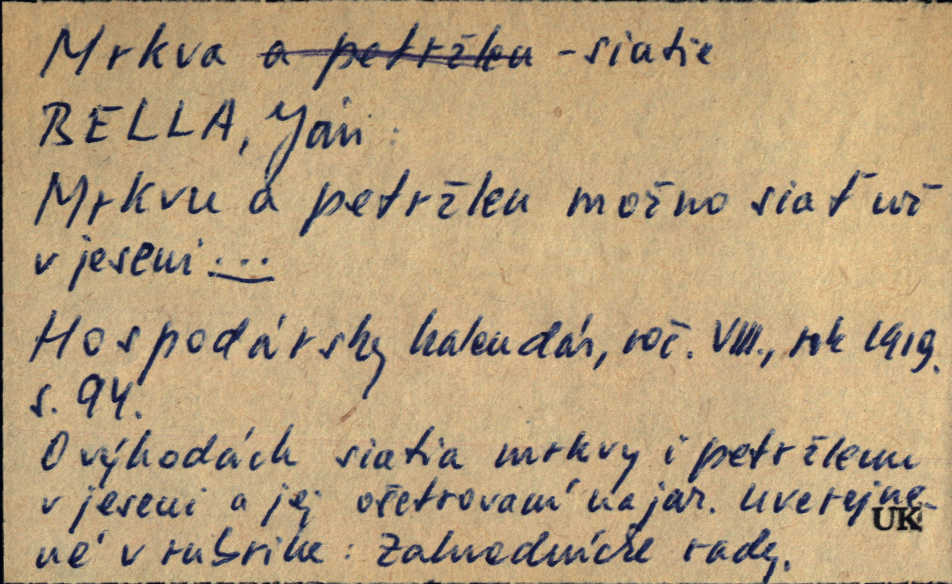 Mrkva a petržlen - siatie
BELLA, Ján:
Mrkvu a petržlen možno siať už
v jeseni ...
Hospodársky kalendár, roč. VIII., rok 1919.
s. 94.
O výhodách siatia mrkvy i petržlenu
v jeseni a jej ošetrovaní na jar. Uverejne-
né v rubrike: Zahradnícke rady.
UK